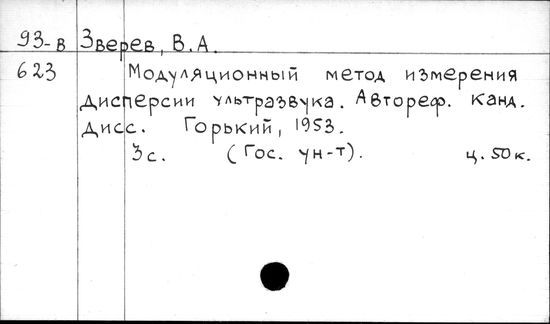 93-в Зверев, В.А.
623 Модуляционный метод измерения
дисперсии ультразвука. Автореф. канд.
дисс. Горький, 1953.
3с. (Гос. ун-т). ц. 50к.